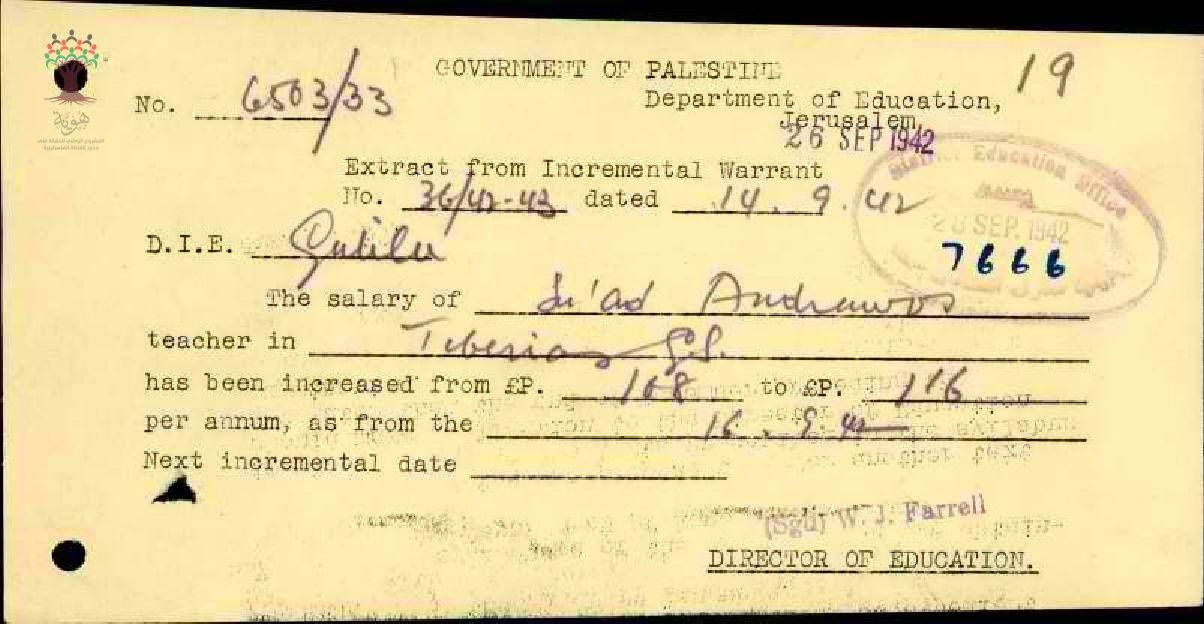 19
GOVERNMENT OF PALESTINE
No. 6503/33
Department of Education,
Jerusalem,
26 SEP 1942
Extract from Incremental Warrant
No. 36/42-43 dated 14.9.42
District Education Office
28 SEP. 1942
7666
D.I.E. Galilee
The salary of Su'ad Andrawos
teacher in Tiberias G.S.
has been increased from £P. 108 to £P. 116
per annum, as from the 16.9.42
Next incremental date
(Sgd) W. J. Farrell
DIRECTOR OF EDUCATION.
هوية